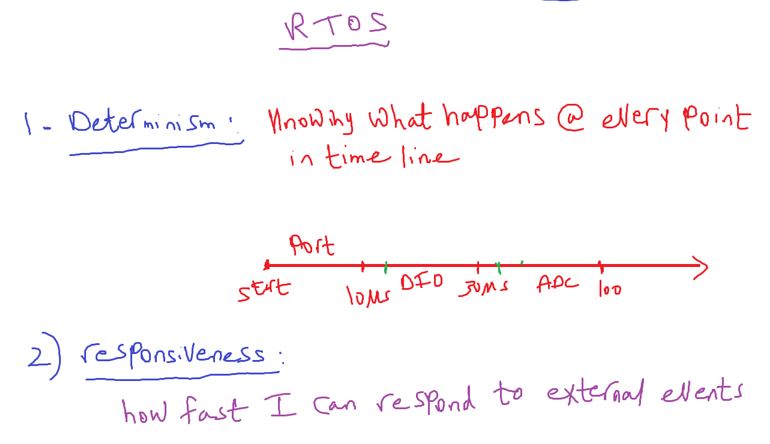 RTOS
1- Determinism: Knowing what happens @ every point
in time line
Port
start 10μs DIO 30μs ADC 100
2) responsiveness:
how fast I can respond to external events